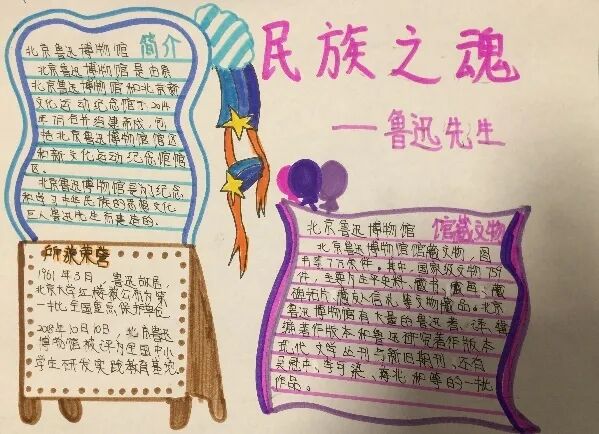 民族之魂
——鲁迅先生
北京鲁迅博物馆 简介
北京鲁迅博物馆是由原
北京鲁迅博物馆和北京新
文化运动纪念馆于2014
年7月合并组建而成,包
括北京鲁迅博物馆馆区
和新文化运动纪念馆馆
区。
北京鲁迅博物馆是为了纪念
和学习中华民族的
巨人鲁迅先生而建造的。
所获荣誉
1961年3月 鲁迅故居,
北京大学红楼被公布为第
一批全国重点保护单位
2018年10月10日,北京鲁迅
博物馆被评为全国中小
学生研发实践教育基地
北京鲁迅博物馆 馆藏文物
北京鲁迅博物馆馆藏文物,图
书等7万余件。其中,国家级文物759
件,主要为生平史料、藏书、藏画、藏
碑拓片、友人信札等文物藏品。北京鲁
迅博物馆有大量的鲁迅著、译、辑
编著作版本和鲁迅研究著作版本
现代文学丛刊与新旧期刊、还有
吴冠中、李可染、蒋兆和等的一批
作品。